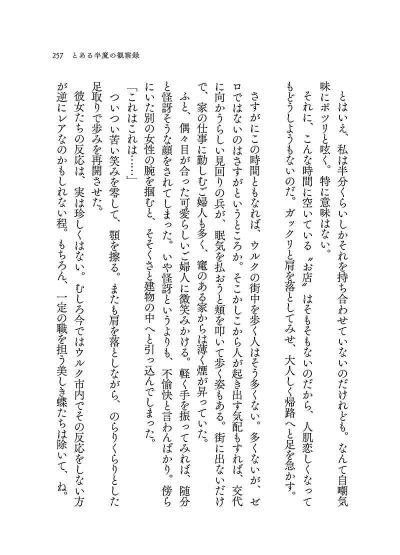 257　とある半魔の観察録
とはいえ、私は半分くらいしかそれを持ち合わせていないのだけれども。なんて自嘲気
味にポツリと呟く。特に意味はない。
それに、こんな時間に空いている〝お店〟はそもそもないのだから、人肌恋しくなって
もどうしようもないのだ。ガックリと肩を落としてみせ、大人しく帰路へと足を急かす。
さすがにこの時間ともなれば、ウルクの街中を歩く人はそう多くない。多くないが、ゼ
ロではないのはさすがというところか。そこかしこから人が起き出す気配もすれば、交代
に向かうらしい見回りの兵が、眠気を払おうと頬を叩いて歩く姿もある。街に出ないだけ
で、家の仕事に勤しむご婦人も多く、竃のある家からは薄く煙が昇っていた。
ふと、偶々目が合った可愛らしいご婦人に微笑みかける。軽く手を振ってみれば、随分
と怪訝そうな顔をされてしまった。いや怪訝というよりも、不愉快と言わんばかり。傍ら
にいた別の女性の腕を掴むと、そそくさと建物の中へと引っ込んでしまった。
「これはこれは……」
ついつい苦い笑みを零して、顎を擦る。またも肩を落としながら、のらりくらりとした
足取りで歩みを再開させた。
彼女たちの反応は、実は珍しくはない。むしろ今ではウルク市内でその反応をしない方
が逆にレアなのかもしれない程。もちろん、一定の職を担う美しき蝶たちは除いて、ね。